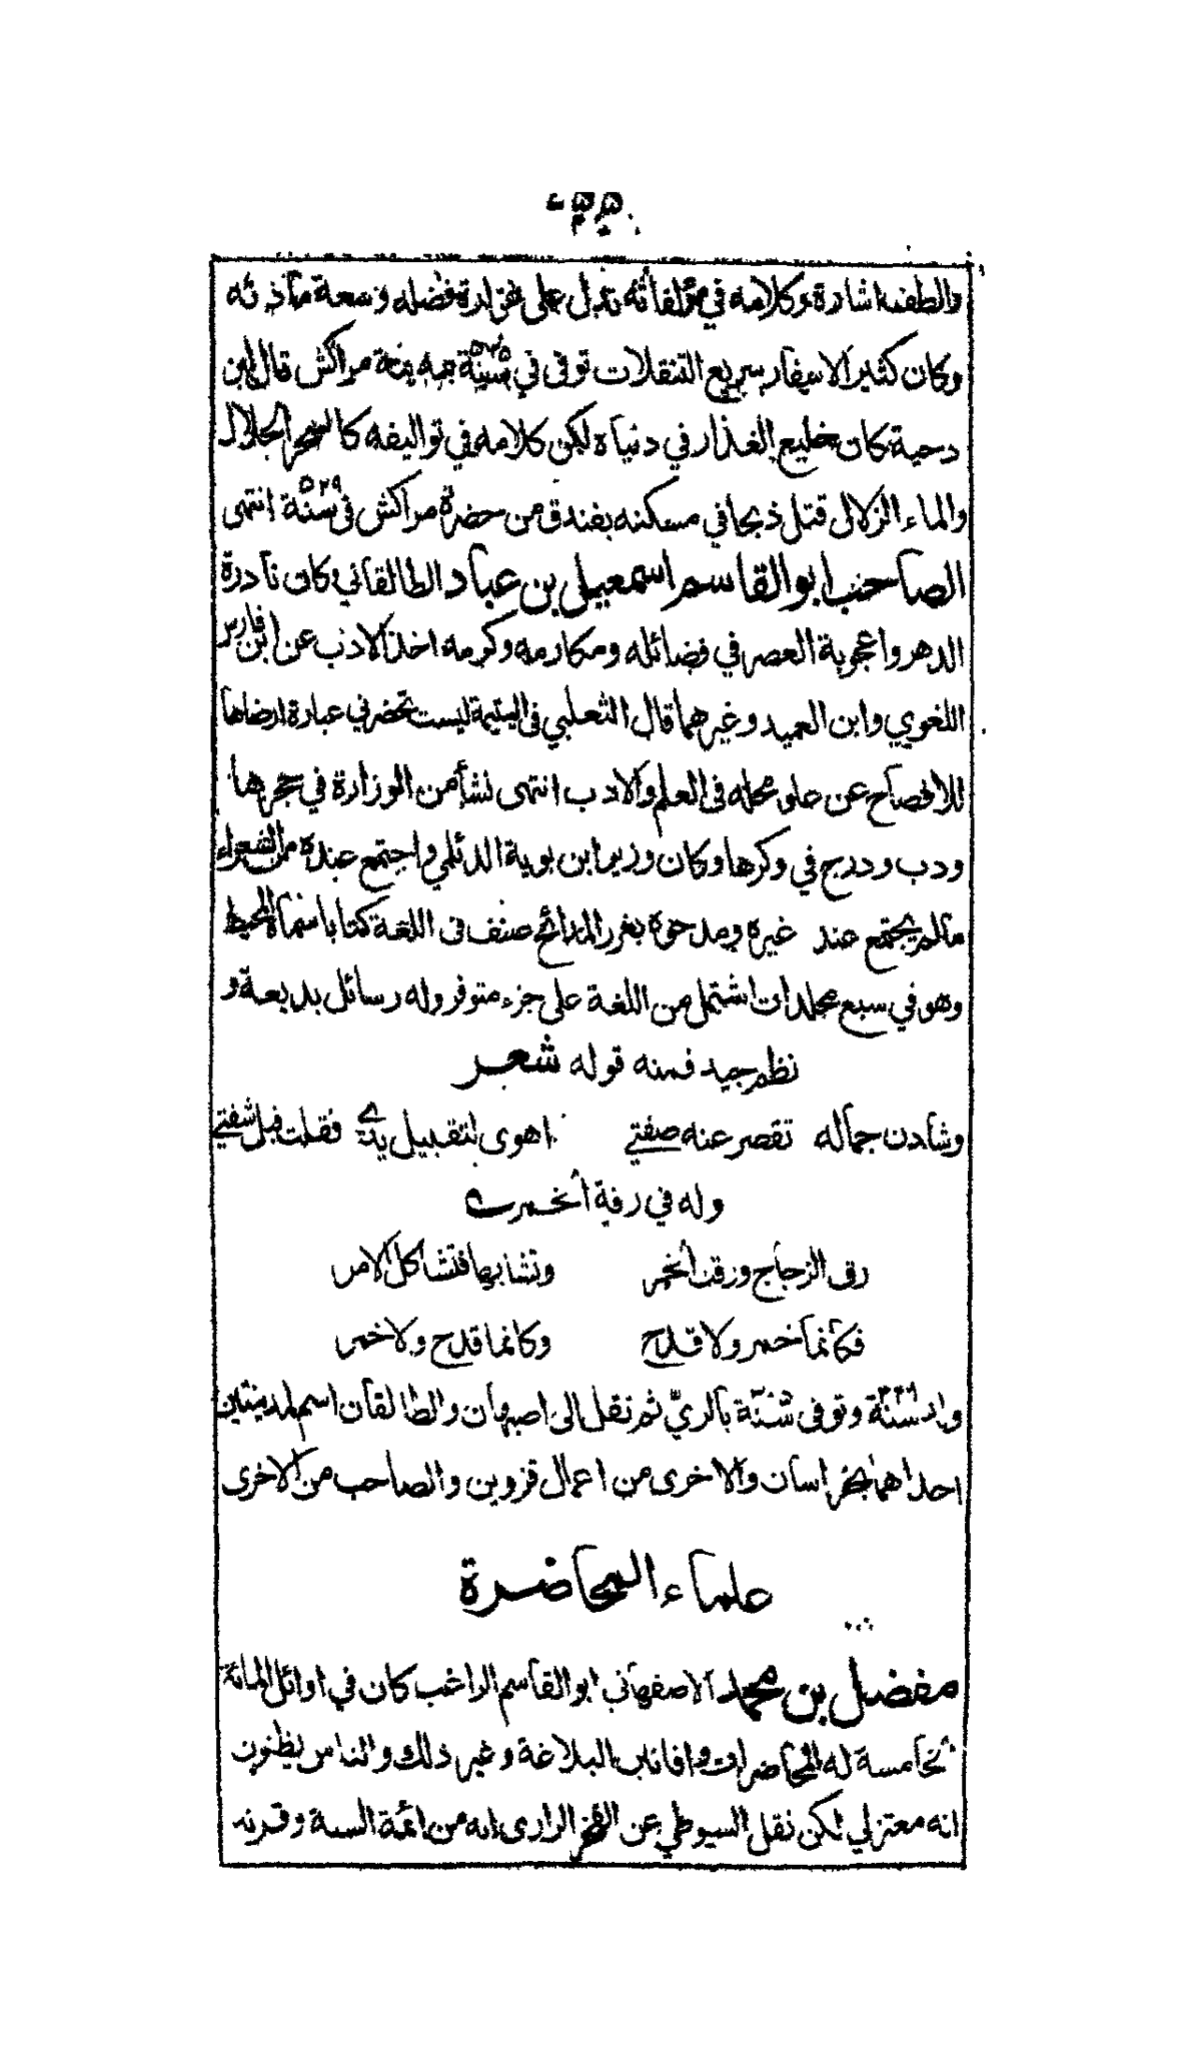 والطفه اشارة وكلامه في مؤلفاته تدل على غزارة فضله وسعة مآذته
وكان كثير الاسفار سريع التنقلات توفى في سنة ٥٣٥ بمدينة مراكش قال ابن
دحية كان خليع العذار في دنياه لكن كلامه في تواليفه كالسحر الحلال
والماء الزلال قتل ذبحا في مسكنه بفندق من حضرة مراكش فى سنة ٥٢٩ انتهى
الصاحب ابو القاسم اسمعيل بن عباد الطالقاني وكان نادرة
الدهر واعجوبة العصر في فضائله ومكارمه وكرمه اخذ الادب عن ابن فارس
اللغوي وابن العميد وغيرهما قال الثعلبي فى اليتيمة ليست تحضرني عبارة ارضاها
للافصاح عن علو محله فى العلم والادب انتهى نشأ من الوزارة في حجرها
ودب ودرج في وكرها وكان وزير ابن بوية الدئلي واجتمع عنده من الشعراء
مالم يجتمع عند غيره ومدحوه بغرر المدائح صنف فى اللغة كتابا سماه المحيط
وهو في سبع مجلدات اشتمل من اللغة على جزء متوفر وله رسائل بديعة و
نظم جيد فمنه قوله شعر
وشادن جماله تقصر عنه صفتي اهوى لتقبيل يدي فقلت قبل شفتي
وله في رقة الخمر
رق الزجاج ورقت الخمر وتشابها فتشاكل الامر
فكانما خمر ولا قدح وكانما قدح ولا خمر
ولد سنة وتوفى سنة بالريّ ثم نقل الى اصبهان والطالقان اسم لمدينتين
احداهما بخراسان والاخرى من اعمال قزوين والصاحب من الاخرى
علماء المحاضرة
مفضل بن محمد الاصفهاني ابو القاسم الراغب كان في اوائل المائة
الخامسة له المحاضرات وافانين البلاغة وغير ذلك والناس يظنون
انه معتزلي لكن نقل السيوطي عن الفخر الرازى انه من ائمة السنة وقرنه